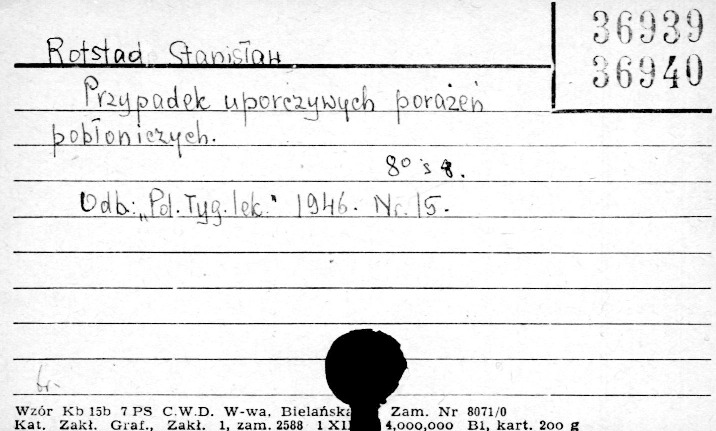 36939
36940
Rotstad Stanisław
Przypadek uporczywych porażeń
pobłoniczych.
8° s 8.
Odb: „Pol. Tyg. lek." 1946. Nr. 15.
br.
Wzór Kb 15b 7 PS C.W.D. W-wa, Bielańska Zam. Nr 8071/0
Kat. Zakł. Graf., Zakł. 1, zam. 2588 1 XII 4,000,000 B1, kart. 200 g